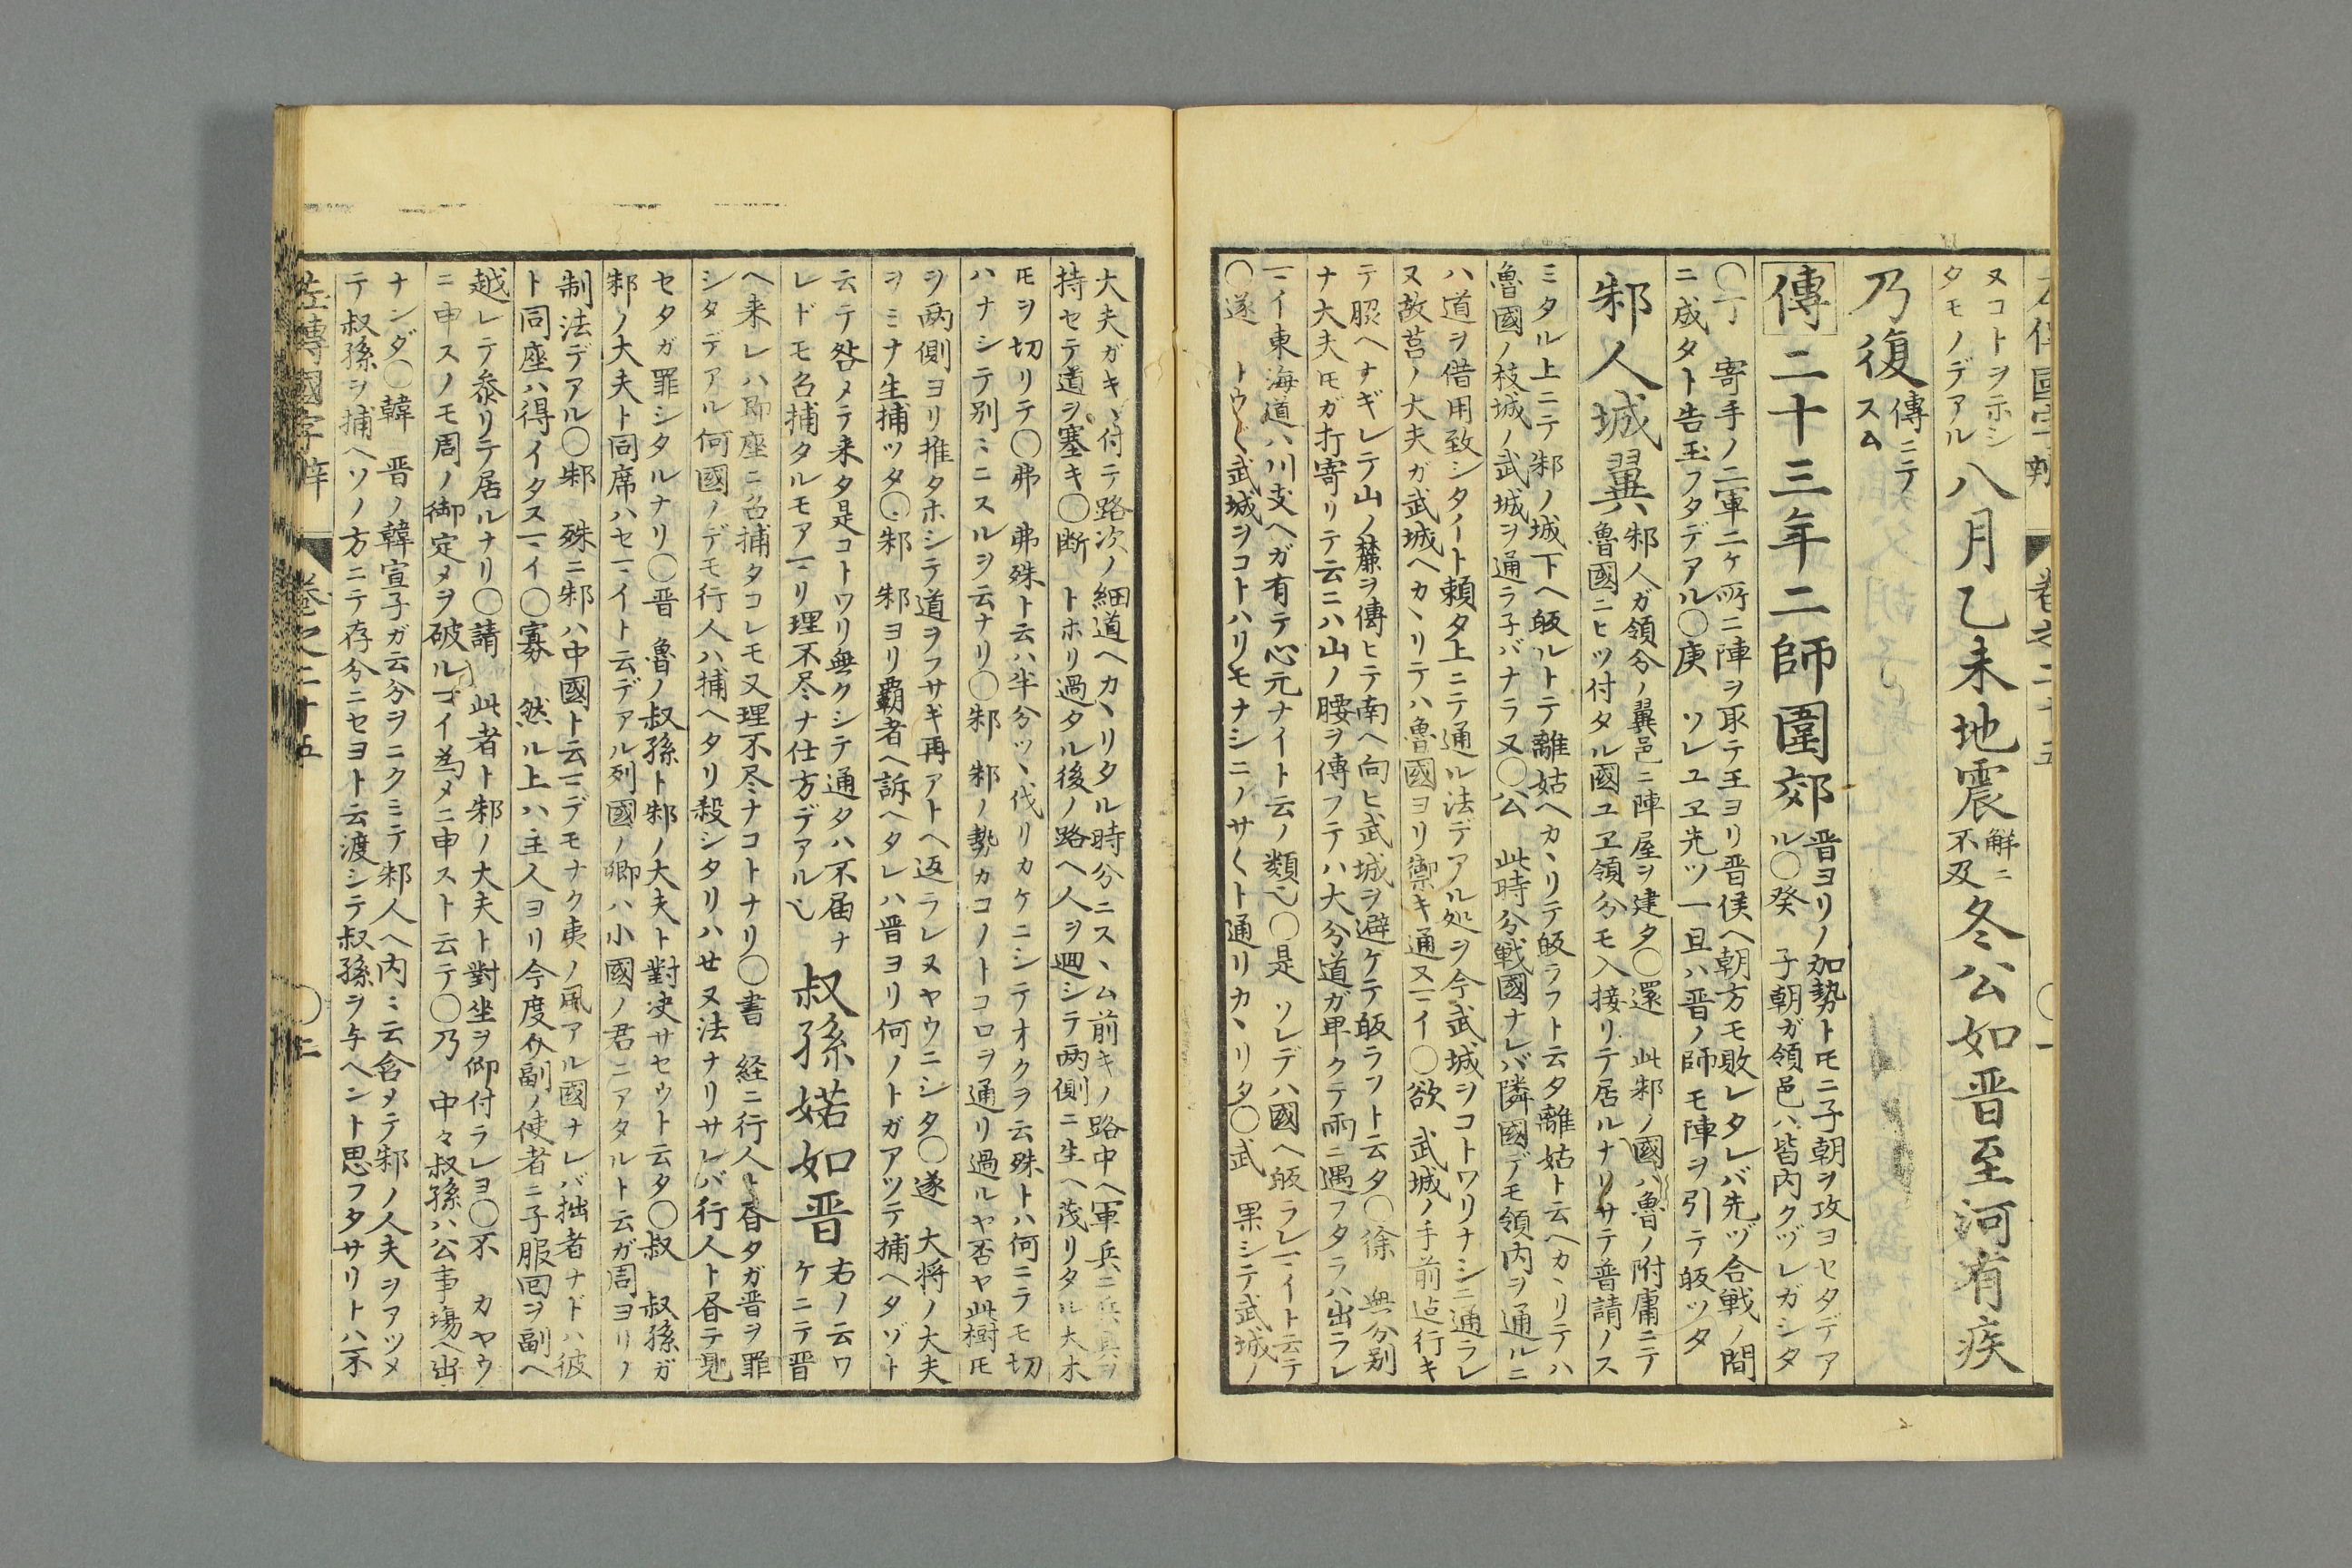 左傳國字辯 巻之二十五 〇一
ヌコトヲ示シ
タモノデアル
八月乙未地震
解ニ
不及
冬公如晋至河有疾
乃復
傳ニテ
スム
傳二十三年二師圍郊
晋ヨリノ加勢トモニ子朝ヲ攻ヨセタデア
ル〇癸 子朝ガ領邑ハ皆内クヅレガシタ
〇丁 寄手ノ二軍二ケ所ニ陣ヲ取テ王ヨリ晋侯ヘ朝方モ敗レタレバ先ヅ合戦ノ間
ニ成タト告玉フタデアル〇庚 ソレユヱ先ツ一旦ハ晋ノ師モ陣ヲ引テ皈ツタ
邾人城翼
邾人ガ領分ノ翼邑ニ陣屋ヲ建タ〇還 此邾ノ國ハ魯ノ附庸ニテ
魯國ニヒツ付タル國ユヱ領分モ入接リテ居ルナリサテ普請ノス
ミタル上ニテ邾ノ城下ヘ皈ルトテ離姑ヘカヽリテ皈ラフト云タ離姑ト云ヘカヽリテハ
魯國ノ枝城ノ武城ヲ通ラ子バナラヌ〇公 此時分戦國ナレバ隣國デモ領内ヲ通ルニ
ハ道ヲ借用致シタイト頼タ上ニテ通ル法デアル処ヲ今武城ヲコトワリナシニ通ラレ
ヌ故莒ノ大夫ガ武城ヘカヽリテハ魯國ヨリ禦キ通ヌマイ〇欲 武城ノ手前迠行キ
テ脵ヘナギレテ山ノ麓ヲ傳ヒテ南ヘ向ヒ武城ヲ避ケテ皈ラフト云タ〇徐 無分別
ナ大夫モガ打寄リテ云ニハ山ノ腰ヲ傳フテハ大分道ガ卑クテ雨ニ遇フタラハ出ラレ
マイ東海道ハ川支ヘガ有テ心元ナイト云ノ類也〇是 ソレデハ國ヘ皈ラレマイト云テ
〇遂 トウ〱武城ヲコトハリモナシニノサ〱ト通リカヽリタ〇武 果シテ武城ノ
大夫ガキヽ付テ路次ノ細道ヘカヽリタル時分ニスヽム前キノ路中ヘ軍兵ニ兵具ヲ
持セテ道ヲ塞キ〇断 トホリ過タル後ノ路ヘ人ヲ廻シテ両側ニ生ヘ茂リタル大木
モヲ切リテ〇弗 弗殊ト云ハ半分ツヽ伐リカケニシテオクヲ云殊トハ何ニラモ切
ハナシテ別ミニスルヲ云ナリ〇邾 邾ノ勢カコノトコロヲ通リ過ルヤ否ヤ此樹モ
ヲ両側ヨリ推タホシテ道ヲフサギ再アトヘ返ラレヌヤウニシタ〇遂 大将ノ大夫
ヲミナ生捕ツタ〇邾 邾ヨリ覇者ヘ訴ヘタレハ晋ヨリ何ノトガアツテ捕ヘタゾト
云テ咎メテ来タ是コトワリ無クシテ通タハ不届ナ
レドモ召捕タルモアマリ理不尽ナ仕方デアル也
叔孫婼如晋
右ノ云ワ
ケニテ晋
ヘ来レハ即座ニ召捕タコレモ又理不尽ナコトナリ〇書 経ニ行人ト昏タガ晋ヲ罪
シタデアル何國ノデモ行人ハ捕ヘタリ殺シタリハせヌ法ナリサレバ行人ト昏テ見
セタガ罪シタルナリ〇晋 魯ノ叔孫ト邾ノ大夫ト對決サセウト云タ〇叔 叔孫ガ
邾ノ大夫ト同席ハセマイト云デアル列國ノ卿ハ小國ノ君ニアタルト云ガ周ヨリノ
制法デアル〇邾 殊ニ邾ハ中國ト云マデモナク夷ノ風アル國ナレバ拙者ナドハ彼
ト同座ハ得イタスマイ〇寡 然ル上ハ主人ヨリ今度介副ノ使者ニ子服回ヲ副ヘ
越レテ叅リテ居ルナリ〇請 此者ト邾ノ大夫ト對坐ヲ仰付ラレヨ〇不 カヤウ
ニ申スノモ周ノ御定メヲ破ルマイ為メニ申スト云テ〇乃 中々叔孫ハ公事場ヘ出
ナンダ〇韓 晋ノ韓宣子ガ云分ヲニクミテ邾人ヘ内ミ云含メテ邾ノ人夫ヲアツメ
テ叔孫ヲ捕ヘソノ方ニテ存分ニセヨト云渡シテ叔孫ヲ与ヘント思フタサリトハ不
左傳國字辯 巻之二十五 〇二